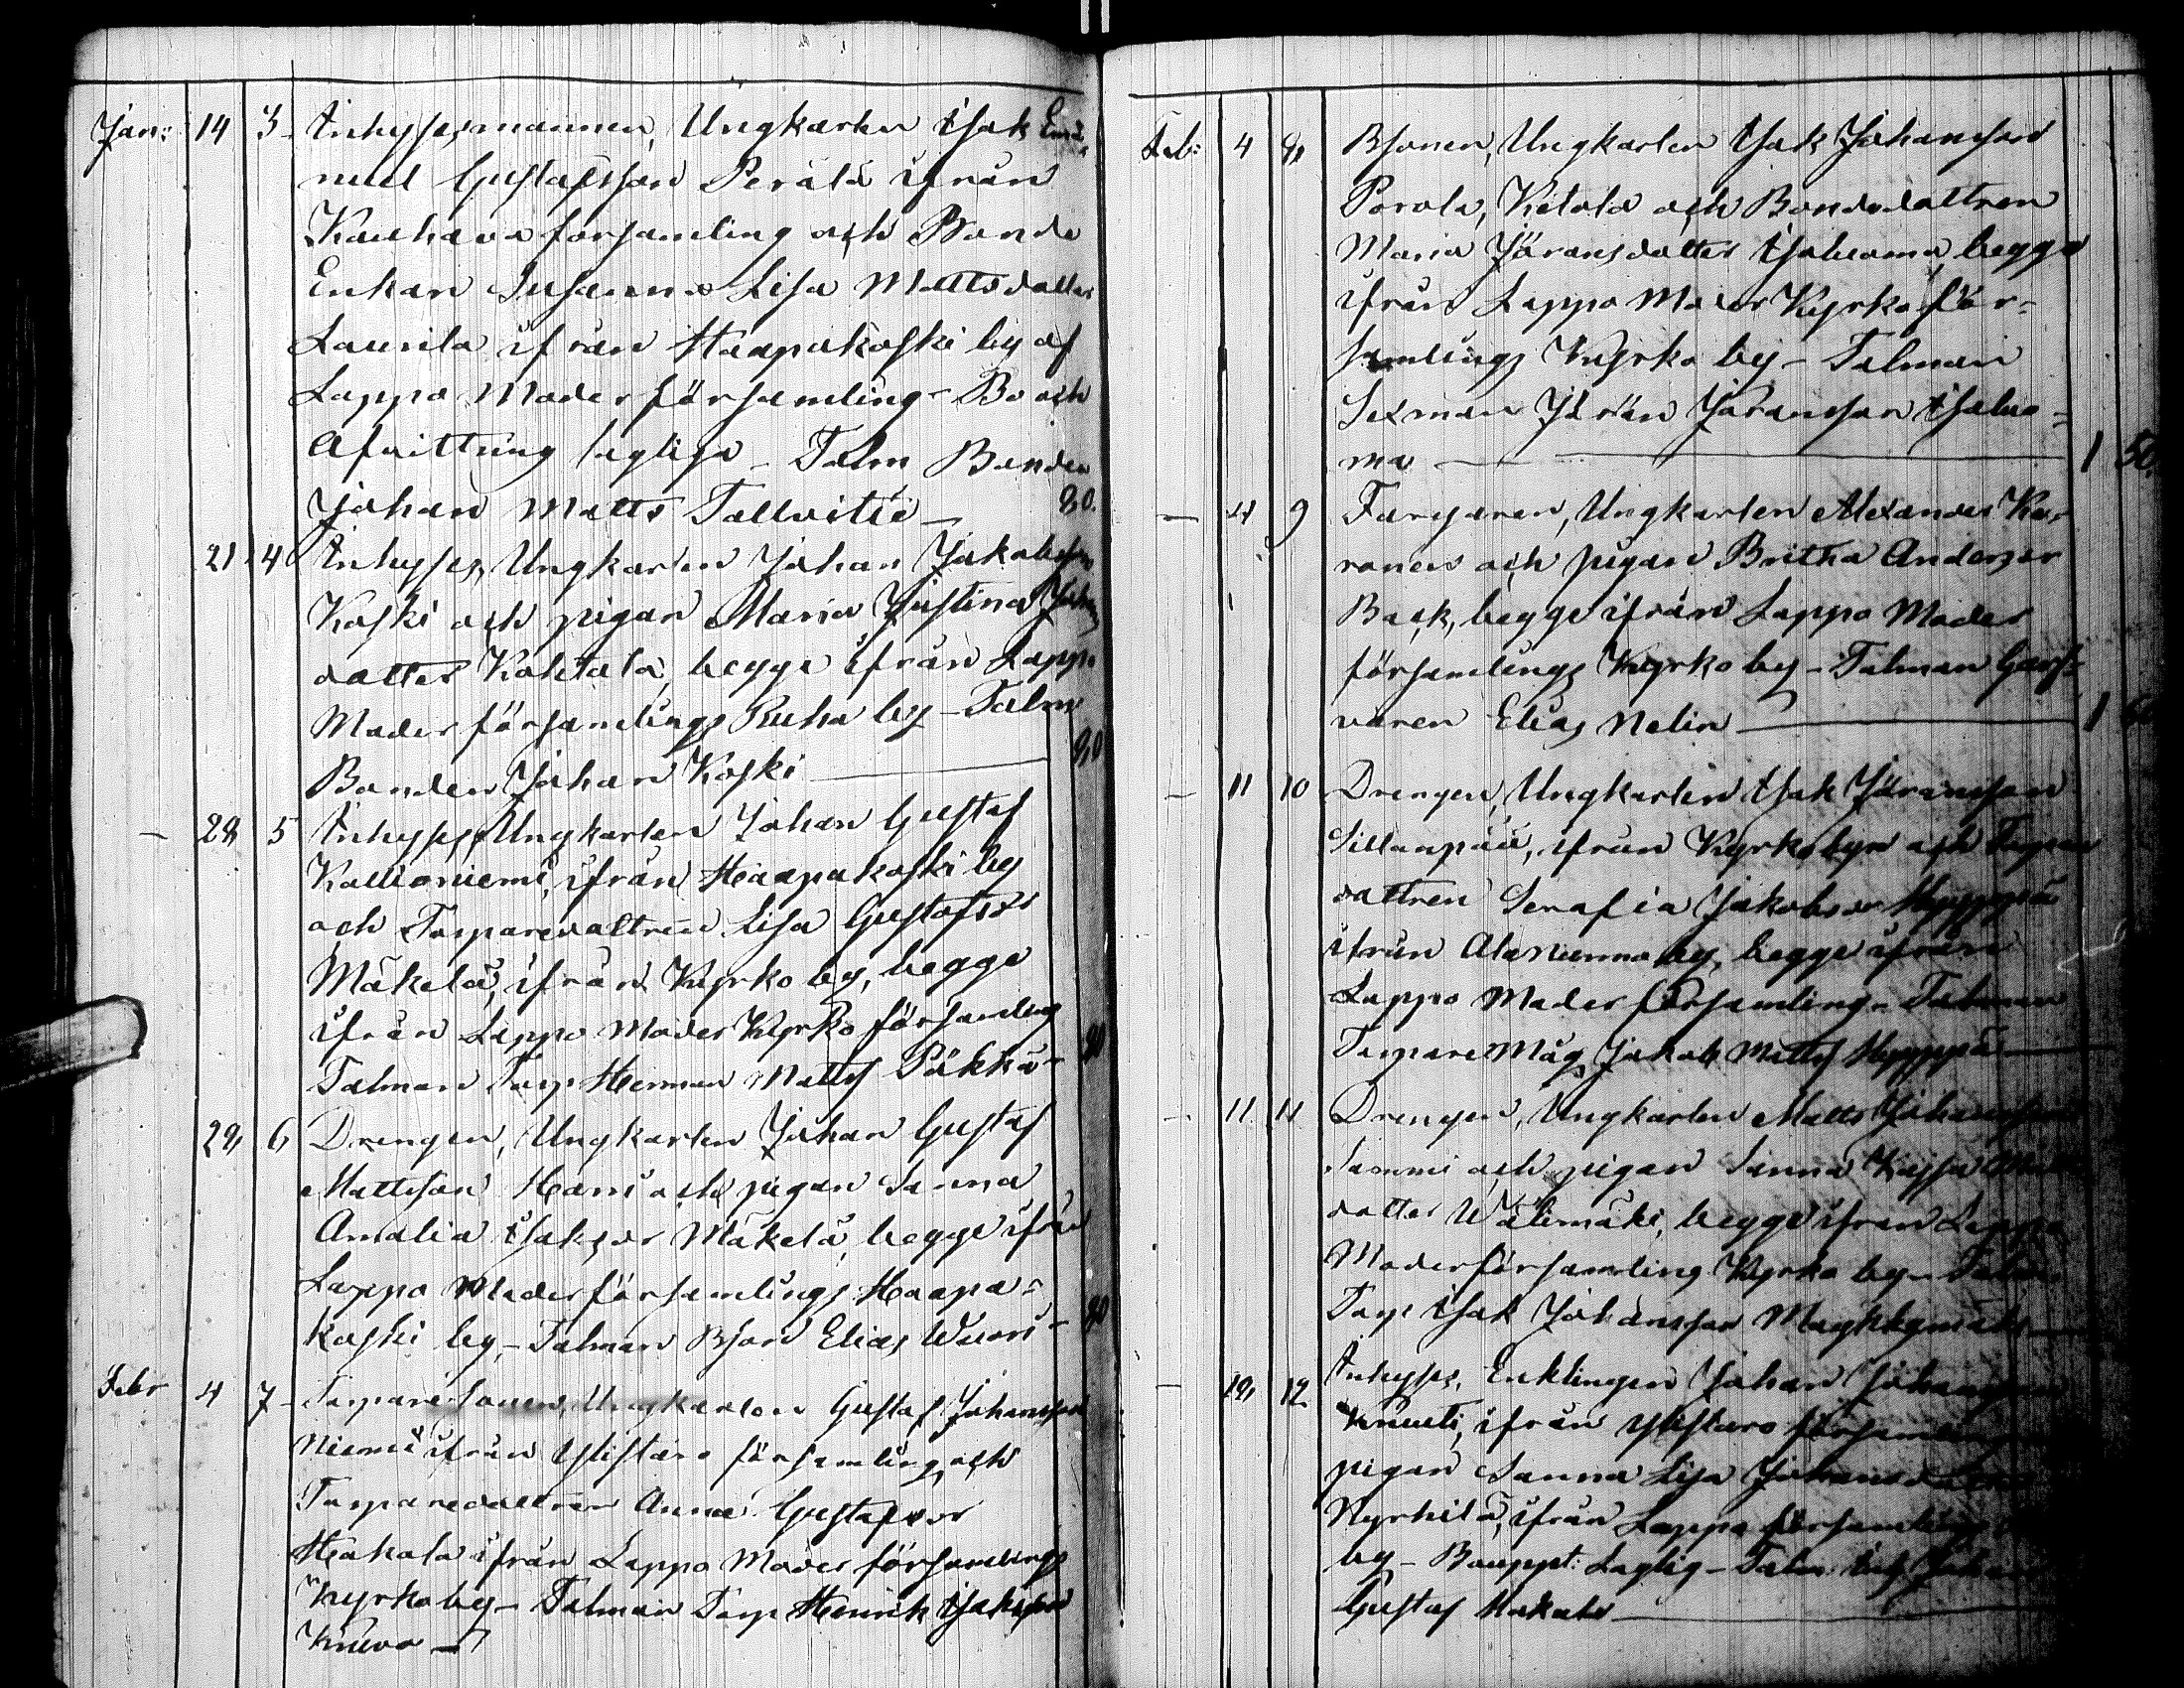 Jan: 14 3 Inhysesmannen, Ungkarlen Isak Ema-
nuel Gustafsson Perälä ifrån
Kauhava församling och Bonde
Enkan Susanna Lisa Mattsdotter
Laurila ifrån Haapakoski by af
Lappo Moderförsamling - Bo och
Afvittring laglige - Talm Bonden
Johan Matts Tallvitie - 80.
21 4 Inhyses, Ungkarlen Johan Jakobsson
Koski och pigan Maria Justina Joh
dotter Kohtala, begge ifrån Lappo
Moderförsamlings Ruha by - Talm
Bonden Johan Koski 80
— 28 5 Inhyses Ungkarlen Johan Gustaf
Kallioniemi, ifrån Haapakoski by
och Torparedottren Lisa Gustafsdr
Mäkelä, ifrån Kyrkoby, begge
ifrån Lappo Moder Kyrko församling
Talman Torp Herman Matts Pökkä - 80
28 6 Drengen, Ungkarlen Johan Gustaf
Mattsson Harri och pigan Sanna
Amalia Isaksdr Mäkelä, begge ifrån
Lappo Moderförsamlings Haapa-
koski by, - Talman Bson Elias Wuori - 80
Febr 4 7 Torparesonen, Ungkarlen Gustaf Johansson
Niemi ifrån Ylistaro församling och
Torparedottren Anna Gustafsdr
Hakala ifrån Lappo Moder församlings
Kyrkoby - Talman Torp Henrik Isaksson
Knuva -
Feb: 4 8 Bsonen, Ungkarlen Isak Johansson
Porola, Ketola och Bondedottren
Maria Jöransdotter Isaluoma begge
ifrån Lappo Moder Kyrko för-
samlings Kyrko by - Talman
Sexman Jöran Jöransson Isaluo-
ma 1 50
— 4 9 Färgaren, Ungkarlen Alexander Ka-
ronen och pigan Britha Andersdr
Back, begge ifrån Lappo Moder
församlings Kyrko by - Talman Garf-
varen Elias Nelin 1
— 11 10 Drengen, Ungkarlen Isak Jöransson
Sillanpää, ifrån Kyrkobyn och Torpare
dottren Serafia Jakobsdr Hyyppä
ifrån Alanurmo by, begge ifrån
Lappo Moder församling - Talman
Torpare Måg Jakob Matts Hyyppä
— 11 11 Drengen, Ungkarlen Matts Johansson
Sammi och pigan Sanna Kajsa
dotter Wälimäki, begge ifrån Lappo
Moderförsamling Kyrko by - Talm
Torp Isak Johansson
— 18 12 Inhyses, Enklingen Johan Johansson
Knuuti, ifrån Ylistaro församling
pigan Sanna Lisa Johansd
Nyrhilä, ifrån Lappo församlings
by - Bouppt: Laglig - Talm: Inh Johan
Gustaf Hakala